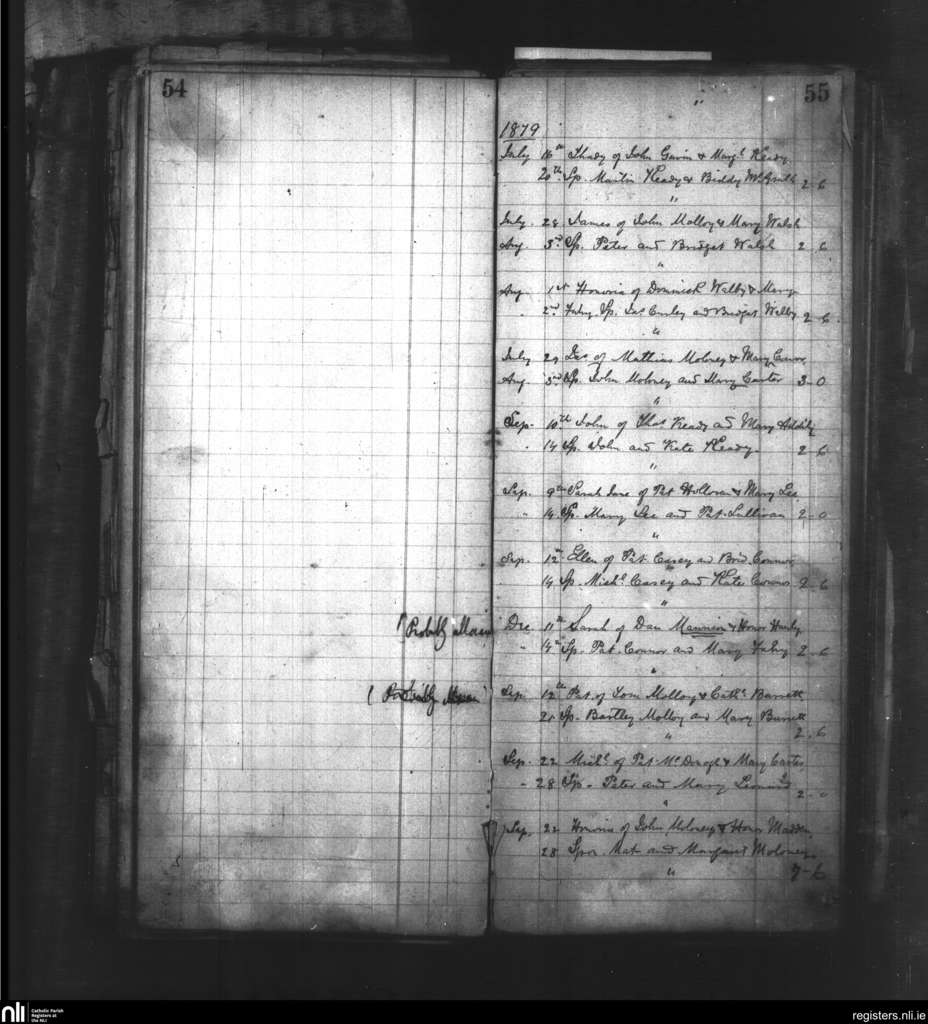 54
(Probably
(Probably
55
"
1879
July 16th Thady of John Gavin & Margt Keady
20th Sp. Martin Keady & Biddy McGrath 2-6
"
July 28 James of John Molloy & Mary Walsh
Aug 3rd Sp. Peter and Bridget Walsh 2 6
"
Aug 1st Honoria of Dominick Welby & Mary
2nd Fahy Sp. Jas Curley and Bridget Welby 2-6
"
July 29 Jas of Mathias Moloney & Mary
Aug 3rd Sp. John Moloney and Mary Carter 3-0
"
Sep. 10th John of Thos Keady and Mary
14 Sp. John and Kate Keady. 2 6
"
Sep. 9th Sarah Jane of Pat Holloran & Mary Lee
" 14 Sp. Mary Lee and Pat Sullivan 2-0
"
Sep. 12th Ellen of Pat Casey and Brid. Connor
14 Sp. Michl Casey and Kate Connor 2-6
"
Dec 11th Sarah of Dan Mannion & Honor
" 14th Sp. Pat Connor and Mary Fahy 2-6
"
Sep. 12th Pat of Tom Molloy & Cath. Barrett
21 Sp. Bartley Molloy and Mary Barrett
" 2.6
Sep. 22 Michl of Pat McDonagh & Mary Carter
" 28 Sp. Peter and Mary Leonard
" 2-0
Sep. 22 Honoria of John Moloney & Honor Madden
28 Spor. Mat and Margaret Moloney.
" 7-6
nli
Catholic Parish
Registers at
the NLI
registers.nli.ie